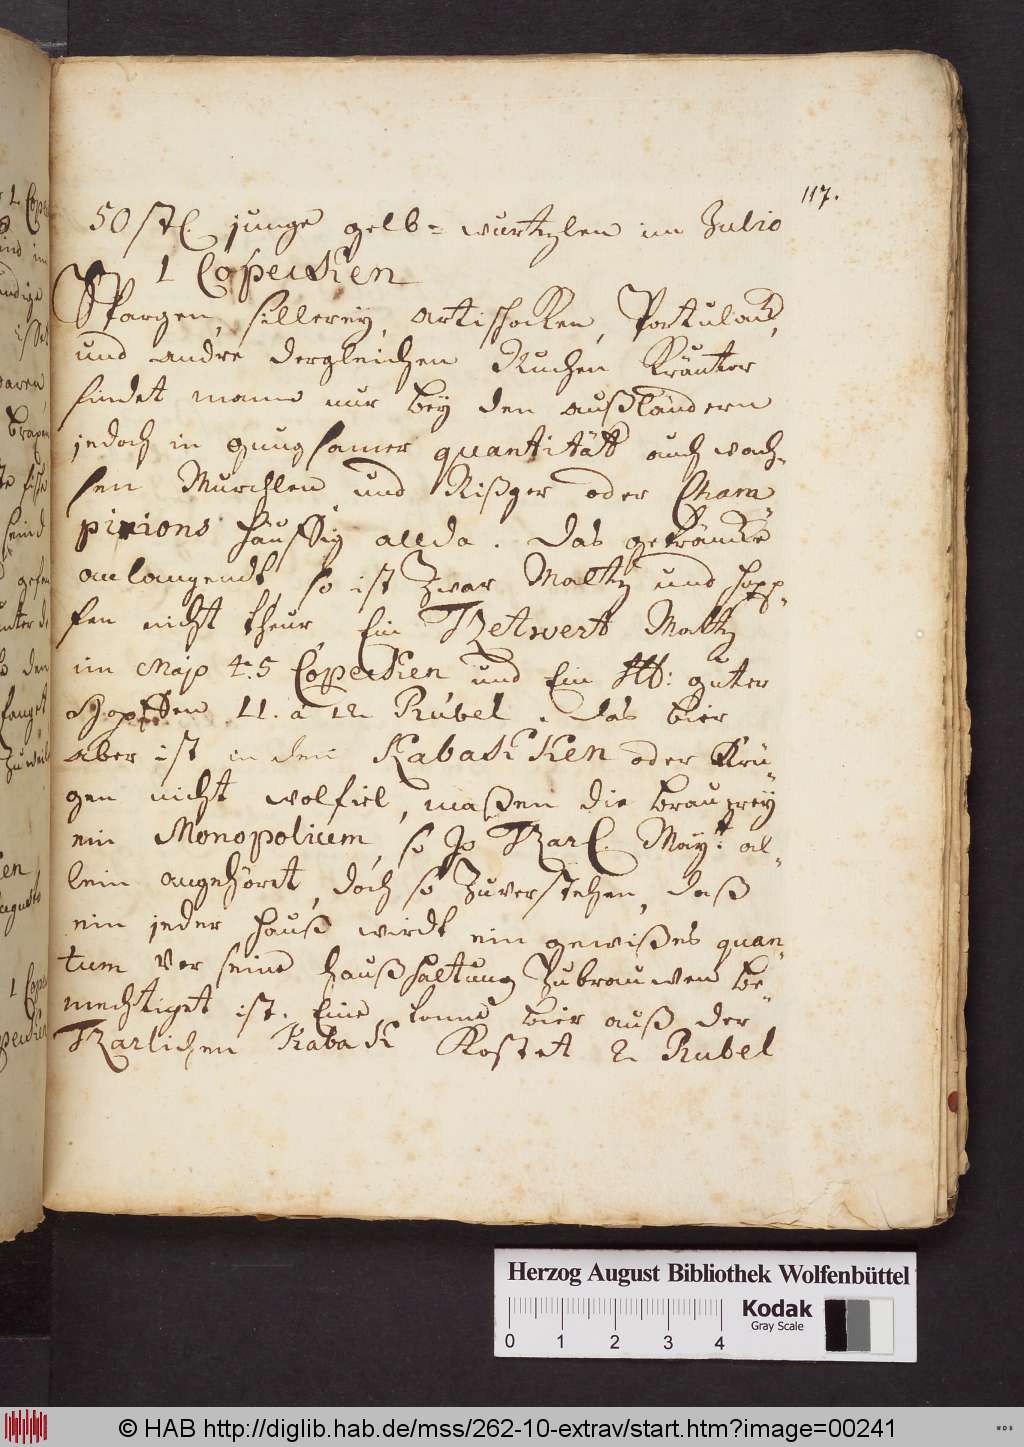 117.
50 stC. junge gelb= wurtzlen im Julio
1 Copecken
Spargen, sillerey, Artischocken, Portulack,
und andre dergleichen Kuchen Kräuter
findet mann nur bey den außländern
jedoch in gnugsamer quantität auch wach-
sen Murchlen und Rißger oder Cham
pinions häuffig allda. das getränke
anlangendt, so ist Zwar Maltz und hopp-
fen nicht theur, Ein TZetwert Maltz
im Majo 4. 5 Copecken und Ein lb: guter
Hopffen 11. a 12 Rubel. das bier
aber ist in den Kabacken oder Krü
gen nicht wolfeil, maßen die brauerey
ein Monopolium, so Jo TZarl. Mayt: al-
lein angehöret, doch so Zuverstehen, daß
ein jeder hauß wirdt ein gewißes quan
tum vor seine haußhaltung Zubrauwen be-
mechtiget ist. Eine tonne bier auß der
TZarlichen Kaback Kostet 2 Rubel
Herzog August Bibliothek Wolfenbüttel
Kodak
Gray Scale
0 1 2 3 4
© HAB http://diglib.hab.de/mss/262-10-extrav/start.htm?image=00241